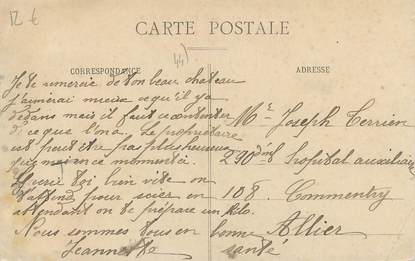 12 €
44
CARTE POSTALE
CORRESPONDANCE
ADRESSE
Je te remercie de ton beau chateau
j'aimerai mieux ce qu'il y a
dedans mais il faut se contenter
de ce que l'on a. Le propriétaire
est peut être pas plus heureux
que moi en ce moment ci.
Guéris toi bien vite on
t'attend pour scier en
attendant on te prépare un
Nous sommes tous en bonne
santé
Jeannette
Mr Joseph Terrien
hopital auxiliaire
108. Commentry
Allier